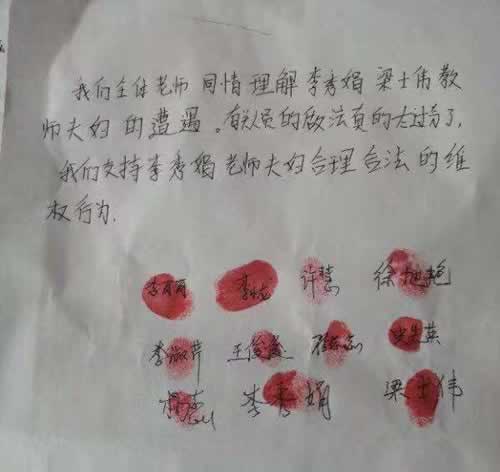 我们全体老师 同情理解 李秀娟 梁士伟教
师夫妇 的遭遇。有关人员的做法真的太过分了,
我们支持李秀娟老师夫妇合理合法的维
权行为.
李丽丽 李悦 许慧 徐旭艳
李淑芹 王俊
李秀娟 梁士伟